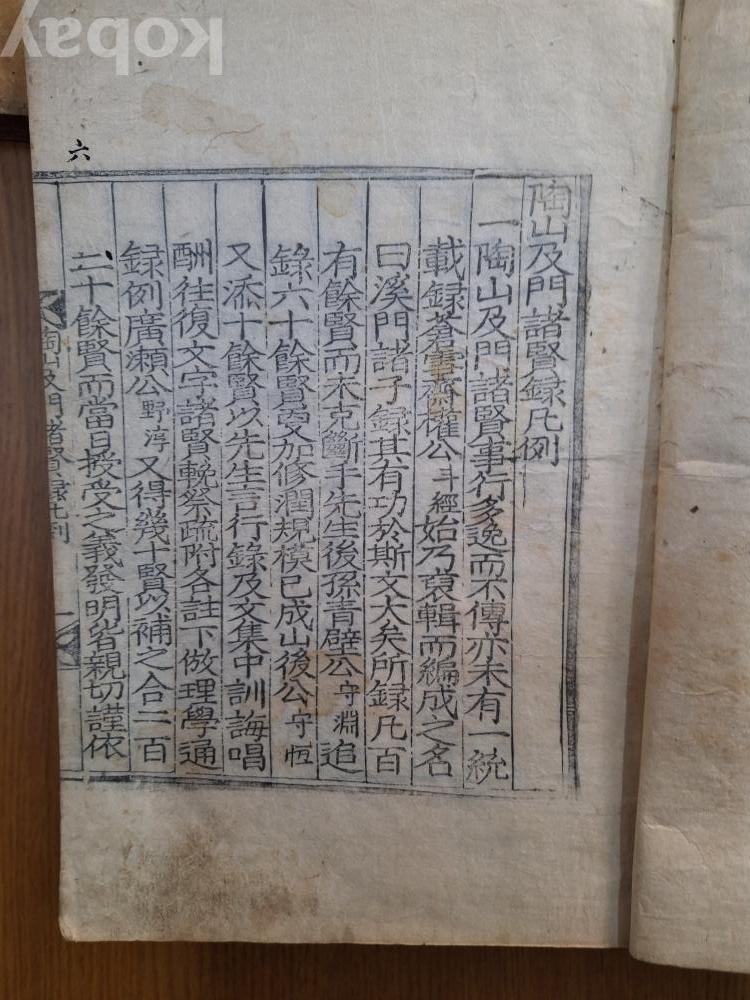 kobay
六
陶山及門諸賢錄凡例
一陶山及門諸賢事行多逸而不傳亦未有一統
載録蒼雪齋權公斗經始乃裒輯而編成之名
曰溪門諸子録其有功於斯文大矣所録凡百
有餘賢而未克斷手先生後孫靑壁公守淵追
錄六十餘賢更加修潤規模已成山後公守恒
又添十餘賢以先生言行錄及文集中訓誨唱
酬往復文字諸賢輓祭疏附各註下倣理學通
録例廣瀨公野淳又得幾十賢以補之合二百
六十餘賢而當日授受之義發明者親切謹依
陶山及門諸賢錄凡例
一